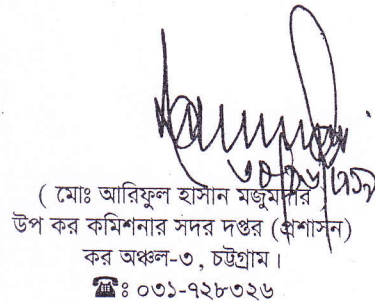 ( মোঃ আরিফুল হাসান মজুমদার )
উপ কর কমিশনার সদর দপ্তর (প্রশাসন)
কর অঞ্চল-৩, চট্টগ্রাম।
☎ঃ ০৩১-৭২৮৩২৬